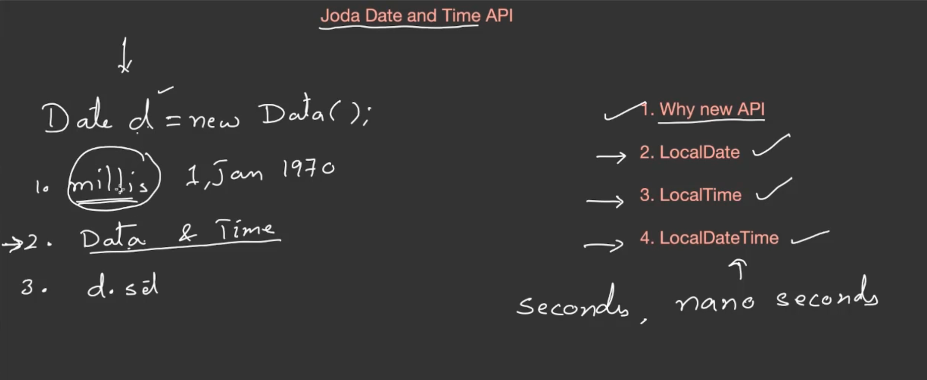 Joda Date and Time API
Date d = new Data();
1. millis 1, Jan 1970
2. Data & Time
3. d. set
1. Why new API
2. LocalDate
3. LocalTime
4. LocalDateTime
seconds, nano seconds